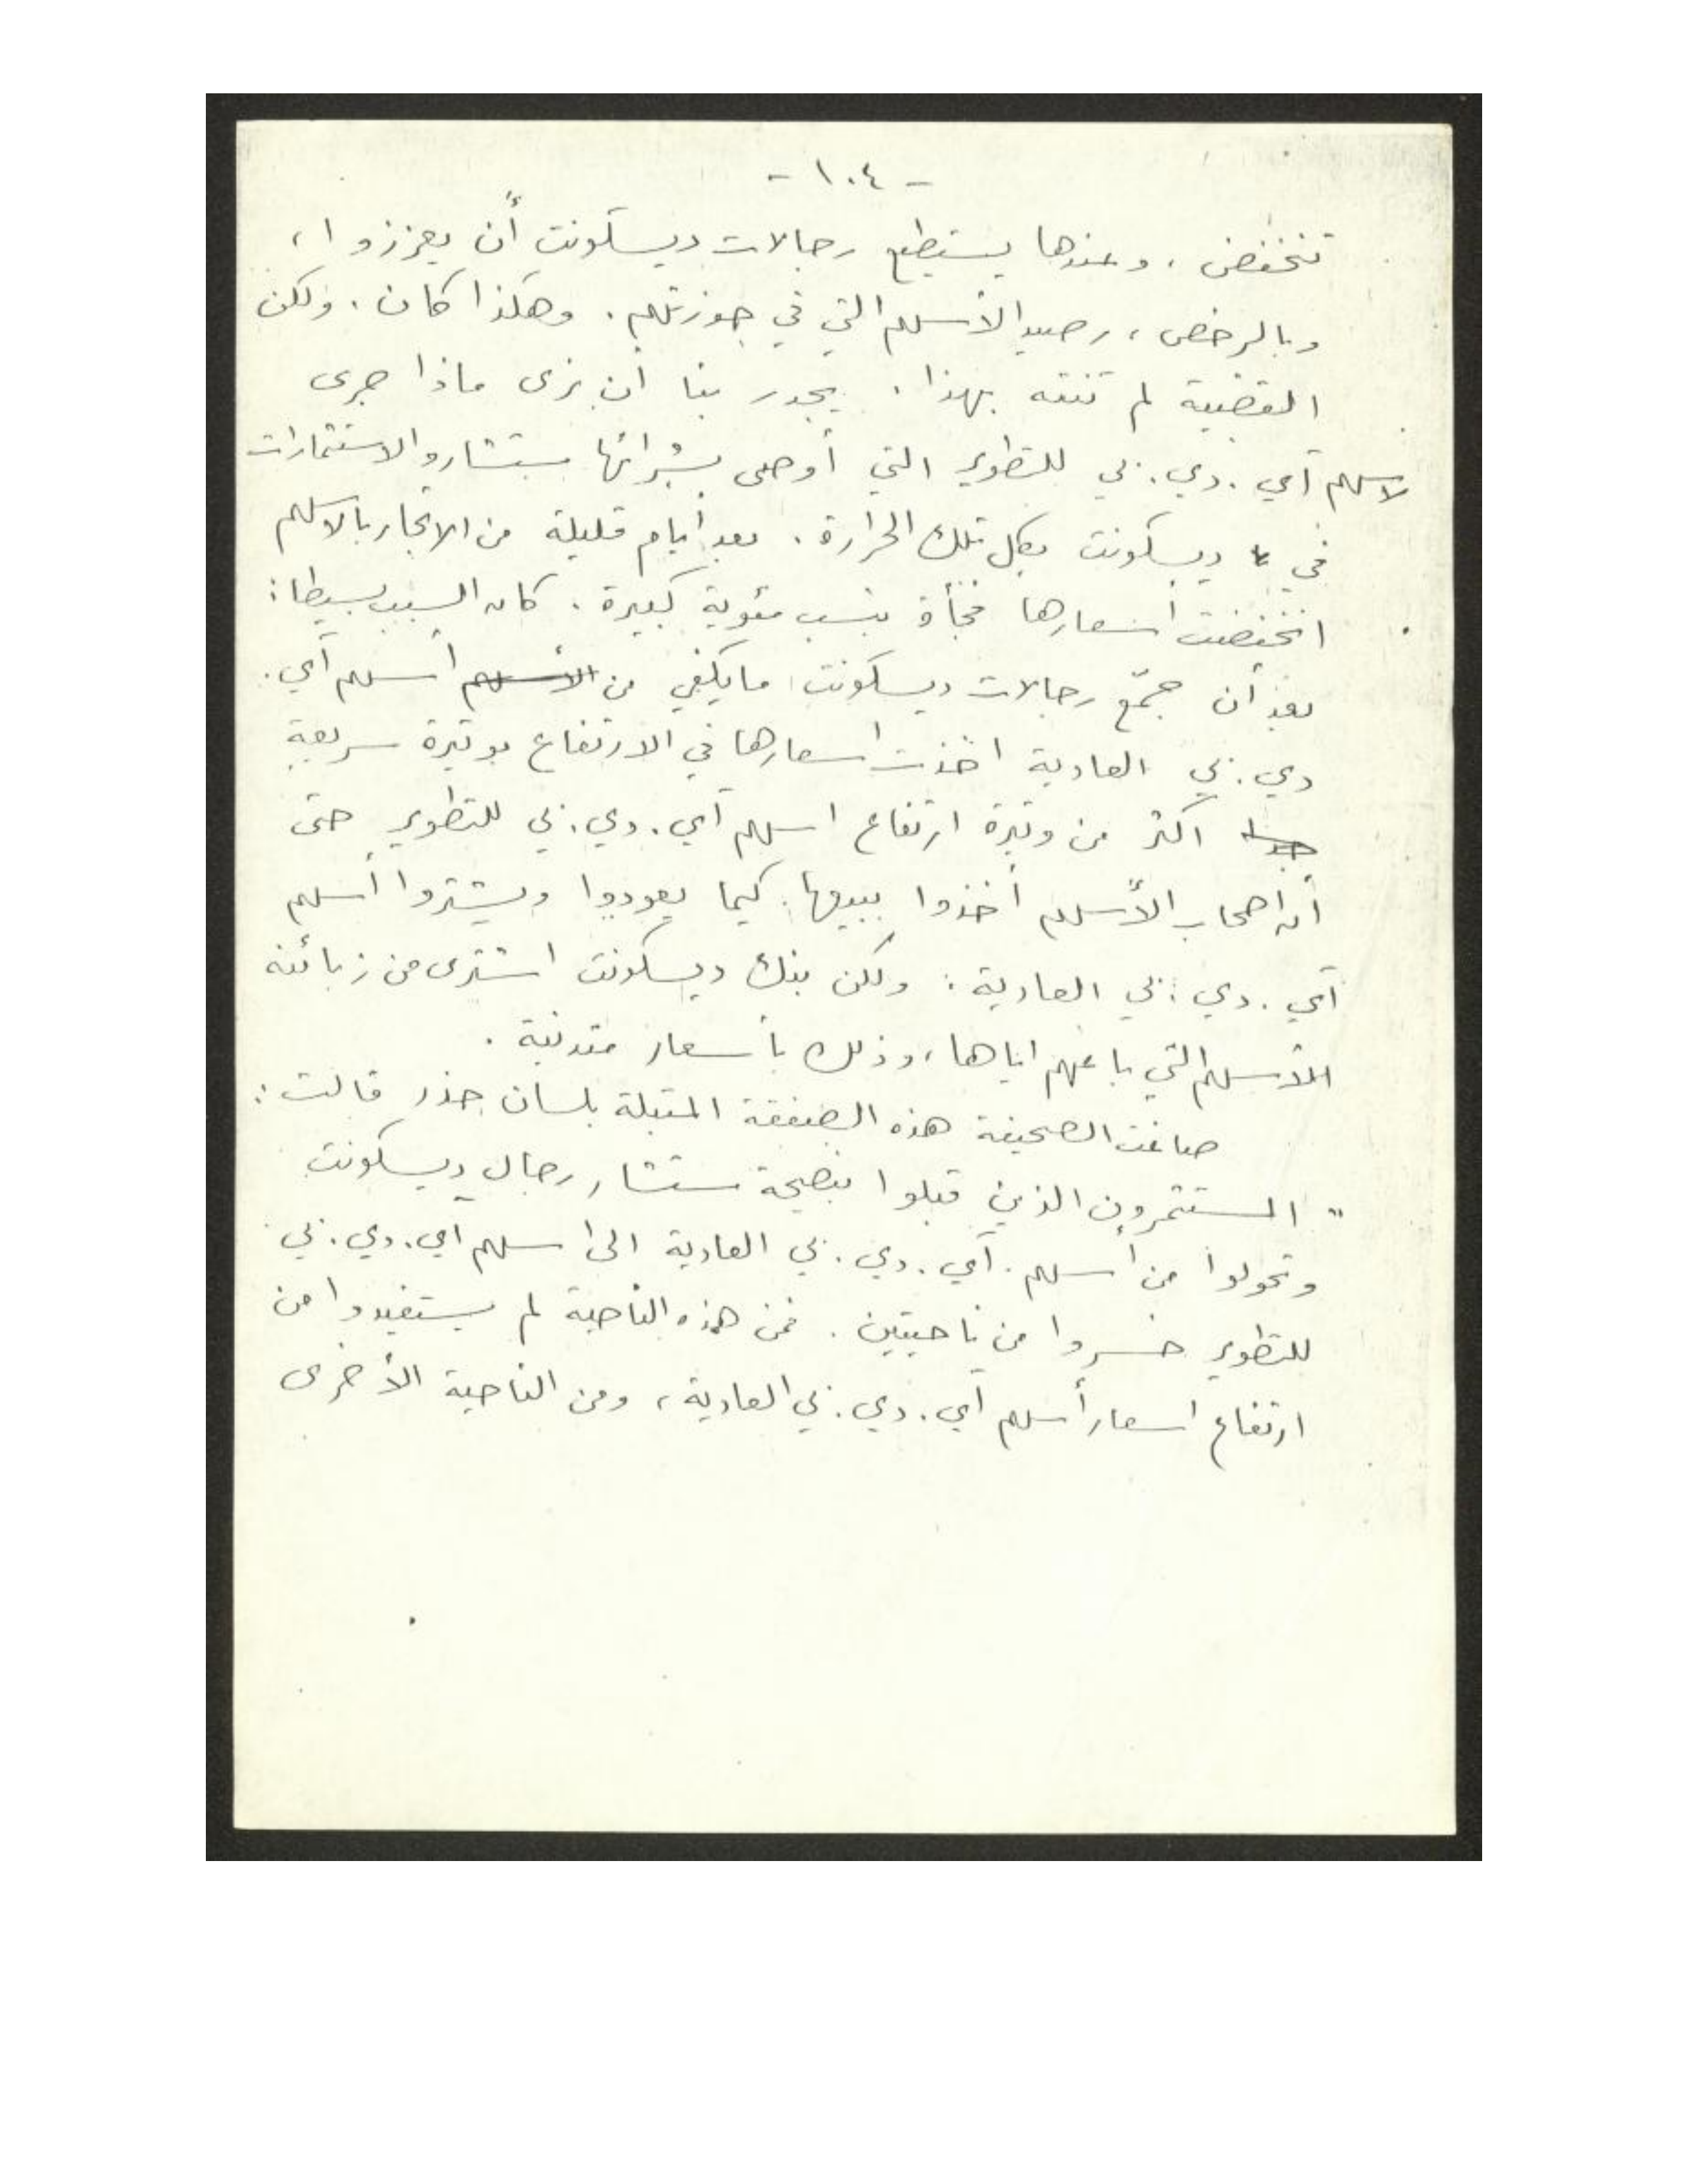 - ١٠٤ -
تنخفض ، وعندها يستطيع رجالات ديسكونت أن يعززوا ،
وبالرخص ، رصيد الأسهم التي في حوزتهم . وهكذا كان . ولكن
القضية لم تنته بهذا . يجدر بنا أن نرى ماذا جرى
لاسهم آي . دي . بي للتطوير التي أوصى بشرائها مستشارو الاستثمارات
في ديسكونت بكل تلك الحرارة . بعد أيام قليلة من الاتجار بالاسهم
انخفضت أسعارها فجأة بنسب مئوية كبيرة . كان السبب بسيطا :
بعد أن جمّع رجالات ديسكونت ما يكفي من الأسهم أسهم آي .
دي . بي العادية اخذت اسعارها في الارتفاع بوتيرة سريعة
جدا اكثر من وتيرة ارتفاع اسهم آي . دي . بي للتطوير حتى
أن اصحاب الأسهم أخذوا ببيعها كيما يعودوا ويشتروا أسهم
آي . دي . بي العادية : ولكن بنك ديسكونت اشترى من زبائنه
الأسهم التي باعهم اياها ، وذلك بأسعار متدنية .
صاغت الصحيفة هذه الصفقة المتبلة بلسان حذر قالت :
" المستثمرون الذين قبلوا بنصيحة مستشار رجال ديسكونت
وتحولوا من أسهم . آي . دي . بي العادية الى اسهم آي . دي . بي
للتطوير خسروا من ناحيتين . فمن هذه الناحية لم يستفيدوا من
ارتفاع اسعار أسهم آي . دي . بي العادية ، ومن الناحية الأخرى